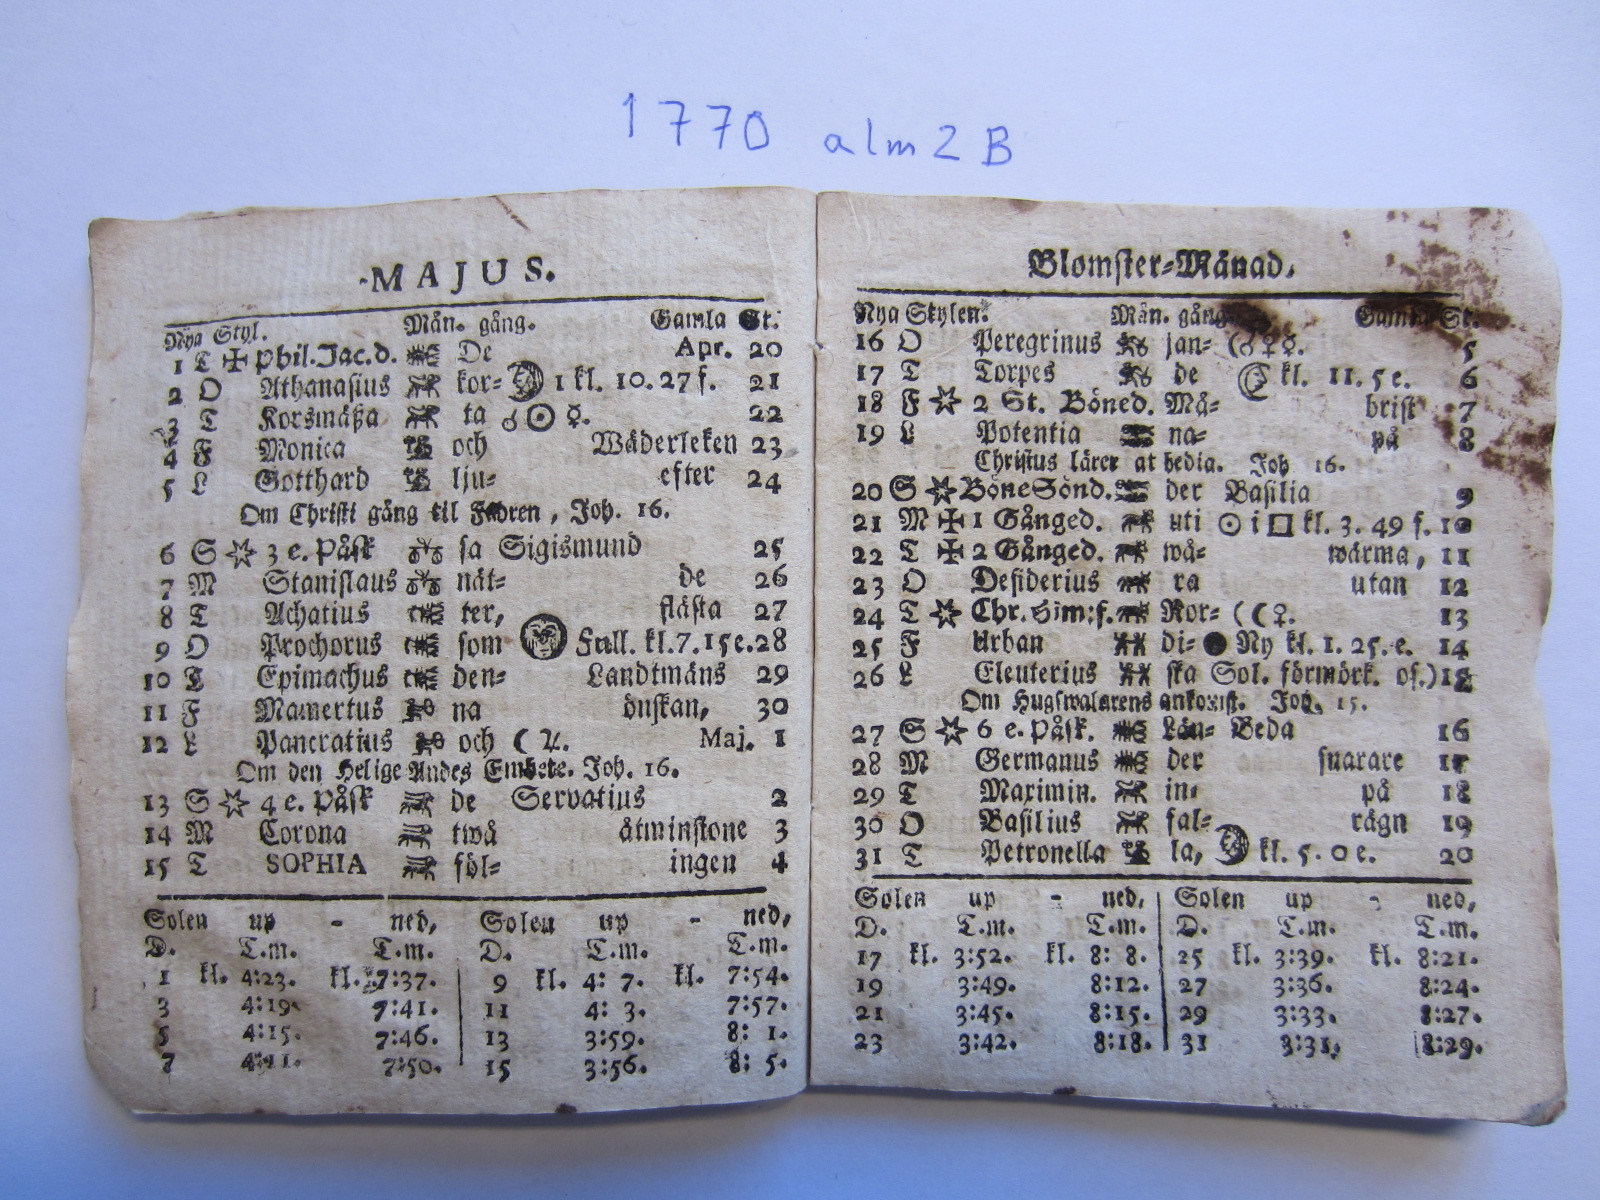 1770 alm2B
MAJUS.
Nya Styl. Mån. gång. Gamla St.
1 T ✠ Phil.Jac.d. De Apr. 20
2 O Athanasius kor- 1 kl. 10.27 f. 21
3 T Korsmäßa ta ☌ ☉ ☿. 22
4 F Monica och Wäderleken 23
5 L Gotthard lju- efter 24
Om Christi gång til Fadren, Joh. 16.
6 S 3 e. Påsk sa Sigismund 25
7 M Stanislaus nät- de 26
8 T Achatius ter, flästa 27
9 O Prochorus som Full. kl.7.15e.28
10 T Epimachus den- Landtmäns 29
11 F Mamertus na önskan, 30
12 L Pancratius och ( ♃. Maj. 1
Om den Helige Andes Embete. Joh. 16.
13 S 4 e. Påsk de Servatius 2
14 M Corona twå åtminstone 3
15 T SOPHIA föl- ingen 4
Solen up - ned, Solen up - ned,
D. T.m. T.m. D. T.m. T.m.
1 kl. 4:23. kl. 7:37. 9 kl. 4: 7. kl. 7:54.
3 4:19. 7:41. 11 4: 3. 7:57.
5 4:15. 7:46. 13 3:59. 8: 1.
7 4:11. 7:50. 15 3:56. 8: 5.
Blomster-Månad.
Nya Stylen. Mån. gång. Gamla St.
16 O Peregrinus jan- (♂ ♀ ☿. 5
17 T Torpes de kl. 11. 5 e. 6
18 F 2 St. Böned. Må- brist 7
19 L Potentia na- på 8
Christus lärer at bedia. Joh 16.
20 S BöneSönd. der Basilia 9
21 M ✠ 1 Gånged. uti ☉ i □ kl. 3. 49 f. 10
22 T ✠ 2 Gånged. wå- wärma, 11
23 O Desiderius ra utan 12
24 T Chr. Him:f. Nor- ( ( ♀. 13
25 F Urban di- ● Ny kl. 1. 25. e. 14
26 L Eleuterius ska Sol. förmörk. os.) 15
Om Hugswalarens ankomst. Joh. 15.
27 S 6 e. Påsk. Län- Beda 16
28 M Germanus der snarare 17
29 T Maximin. in- på 18
30 O Basilius fal- rägn 19
31 T Petronella la, kl. 5. 0 e. 20
Solen up - ned, Solen up - ned,
D. T.m. T.m. D. T.m. T.m.
17 kl. 3:52. kl. 8: 8. 25 kl. 3:39. kl. 8:21.
19 3:49. 8:12. 27 3:36. 8:24.
21 3:45. 8:15. 29 3:33. 8:27.
23 3:42. 8:18. 31 3:31. 8:29.